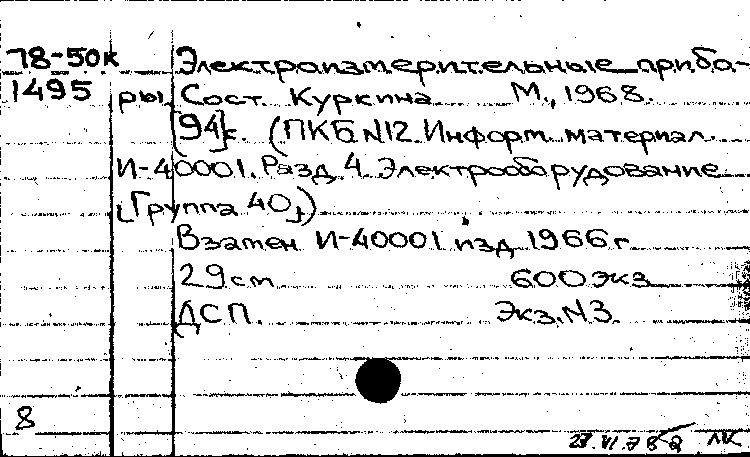 78-50к Электроизмерительные прибо-
1495 ры. Сост. Куркина М., 1968.
[94]с. (ПКБ N12 Информ. материал
И-40001. Разд. 4. Электрооборудование
[Группа 40])
Взамен И-40001 изд 1966 г.
29 см 600 экз
ДСП. Экз. N3.
8